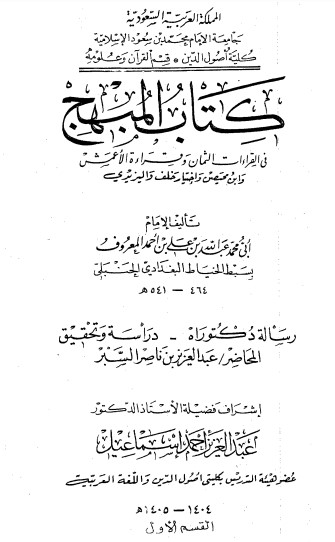 المملكة العربية السعودية
جامعة الإمام محمد بن سعود الإسلامية
كلية أصول الدين * قسم القرآن وعلومه
كتاب المبهج
في القراءات الثمان وقراءة الأعمش
وابن محيصن واختيار خلف واليزيدي
تأليف الإمام
أبي محمد عبد الله بن علي بن أحمد المعروف
بسبط الخياط البغدادي الحنبلي
٤٦٤ - ٥٤١ هـ
رسالة دكتوراه - دراسة وتحقيق
المحاضر/ عبد العزيز بن ناصر السبر
إشراف فضيلة الأستاذ الدكتور
عبد العزيز أحمد إسماعيل
عضو هيئة التدريس بكليتي أصول الدين واللغة العربية
١٤٠٤ - ١٤٠٥ هـ
القسم الأول